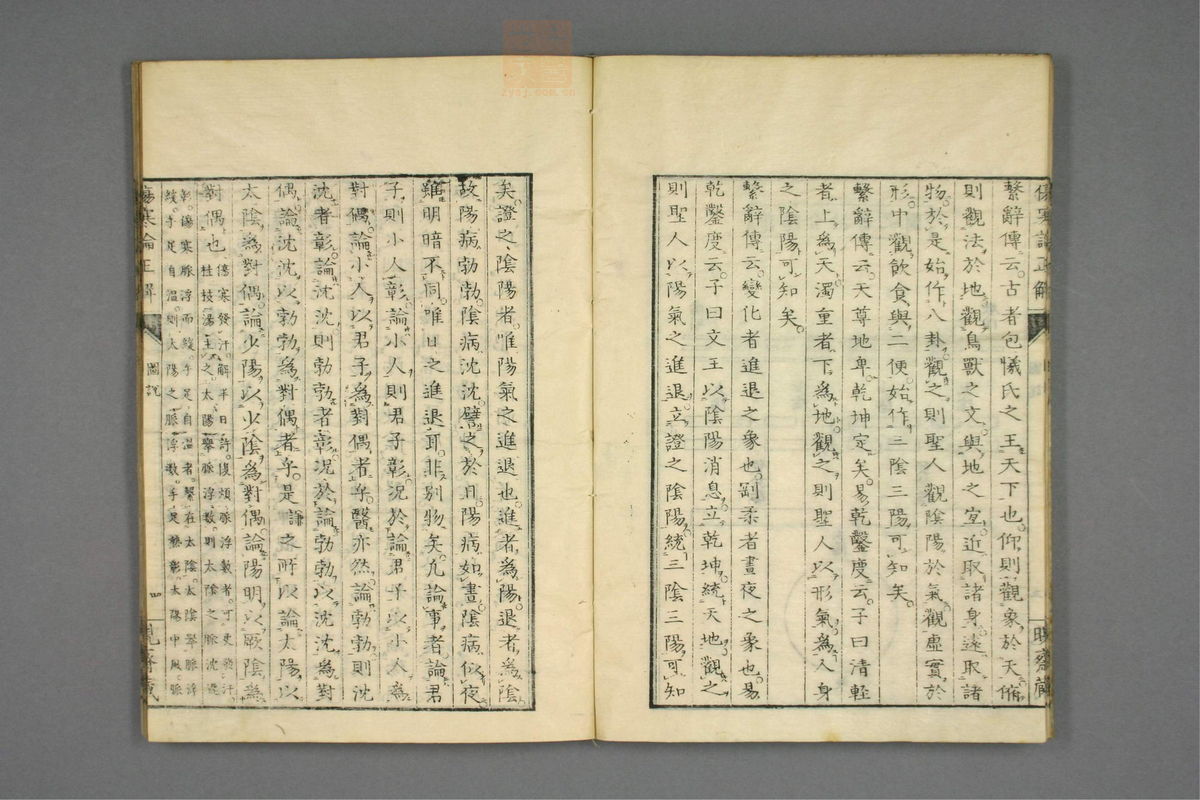 繫辭傳云。古者包犧氏之王天下也。仰則觀象於天。俯
則觀法於地。觀鳥獸之文。與地之宜。近取諸身。遠取諸
物。於是始作八卦。觀之則聖人觀陰陽於氣。觀虛實於
形。中觀飲食與二便。始作三陰三陽可知矣。
繫辭傳云。天尊地卑。乾坤定矣。易乾鑿度云。子曰清輕
者上爲天。濁重者下爲地。觀之則聖人以形氣爲人身
之陰陽可知矣。
繫辭傳云。變化者進退之象也。剛柔者晝夜之象也。易
乾鑿度云。子曰文王以陰陽消息。立乾坤。統天地。觀之
則聖人以陽氣之進退。立證之陰陽。統三陰三陽可知
矣。證之陰陽者。唯陽氣之進退也。進者爲陽。退者爲陰。
故陽病勃勃。陰病沈沈。譬之於日。陽病如晝。陰病似夜。
雖明暗不同。唯日之進退耳。非別物矣。凡論事者。論君
子。則小人彰。論小人。則君子彰。況於論君子以小人爲
對偶。論小人以君子爲對偶者乎。醫亦然。論勃勃。則沈
沈者彰。論沈沈。則勃勃者彰。況於論勃勃以沈沈爲對
偶。論沈沈以勃勃爲對偶者乎。是謙之所以論太陽以
太陰爲對偶。論少陽以少陰爲對偶。論陽明以厥陰爲
對偶也
傷寒發汗。解半日許。復煩脈浮數者。可更發汗。
桂枝湯主之。太陽擧脈浮數。則太陰之脈沈遲
彰。傷寒脈浮而緩。手足自溫者。繫在太陰。太陰擧脈浮
緩。手足自溫。則太陽之脈浮數。手足熱彰。太陽中風。脈
傷寒論正解
圖說
四
傷寒論正解
zysj.com.cn